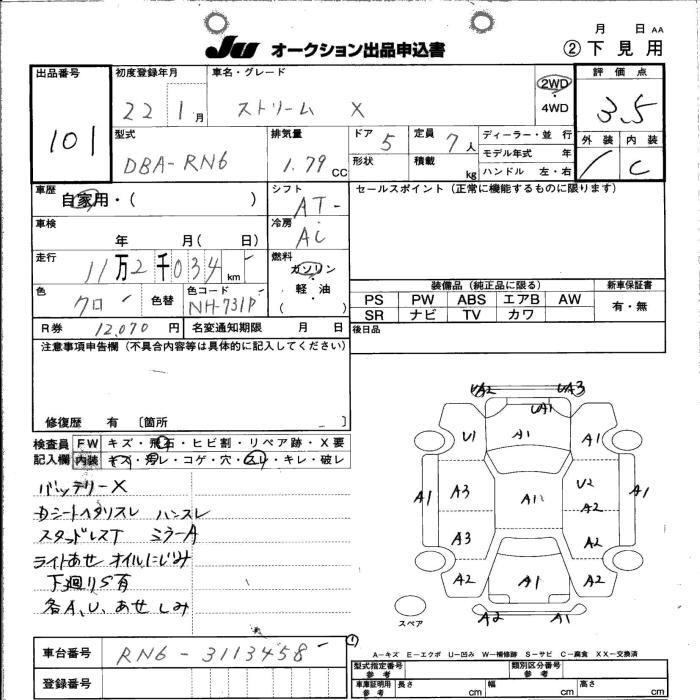 月 日 AA
JU オークション出品申込書 ② 下見用
出品番号 初度登録年月 車名・グレード 2WD 4WD 評価点
101 22 1月 ストリーム X 3.5
型式 排気量 ドア 5 定員 7人 ディーラー・並 行 外装 内装
DBA-RN6 1.79 CC 形状 積載 kg モデル年式 年 / C
ハンドル 左・右
車歴 自家用・( ) シフト AT セールスポイント (正常に機能するものに限ります)
車検 年 月( 日) 冷房 AC
走行 11万2千034km 燃料 ガソリン 軽油 ( )
色 クロ 色替 色コード NH-731P
装備品 (純正品に限る) 新車保証書
PS PW ABS エアB AW 有・無
SR ナビ TV カワ
R券 12,070 円 名変通知期限 月 日 後日品
注意事項申告欄 (不具合内容等は具体的に記入してください)
修復歴 有 〔箇所 〕
検査員 FW キズ・飛石・ヒビ割・リペア跡・X要
記入欄 内装 キズ・汚レ・コゲ・穴・スレ・キレ・破レ
バッテリーX
Dシートヘタリスレ ハンスレ
スタッドレスT ミラーA
ライトあせ オイルにじみ
下廻りS有
各A、U、あせ しみ
UA2 UA3
UA1
U1 A1 A1
A1 A3 A1 U2 A1
A2
A3 A2
A2 A1 A2
A2 A1
スペア
車台番号 RN6-3113458
登録番号
A-キズ E-エクボ U-凹み W-補修跡 S-サビ C-腐食 XX-交換済
型式指定番号 参考 類別区分番号 参考
車庫証明用 参考 長さ cm 幅 cm 高さ cm